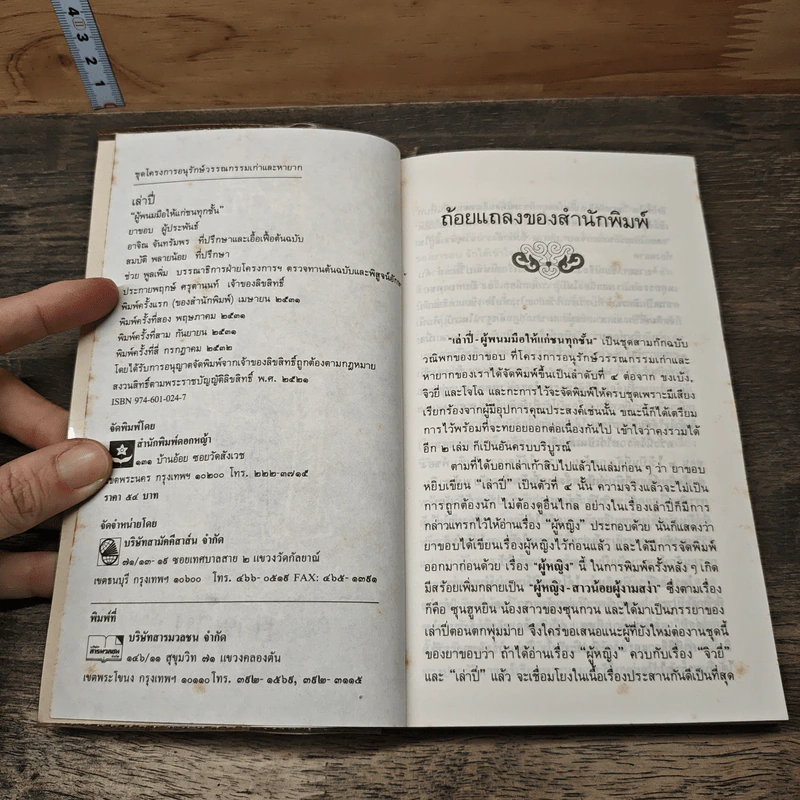 4 3 2 1
ชุดโครงการอนุรักษ์วรรณกรรมเก่าและหายาก
เล่าปี่
"ผู้พนมมือให้แก่ชนทุกชั้น"
ยาขอบ ผู้ประพันธ์
อาจิณ จันทรัมพร ที่ปรึกษาและเอื้อเฟื้อต้นฉบับ
สมบัติ พลายน้อย ที่ปรึกษา
ช่วย พูลเพิ่ม บรรณาธิการฝ่ายโครงการฯ ตรวจทานต้นฉบับและพิสูจน์อักษร
ประกายพฤกษ์ ศรุตานนท์ เจ้าของลิขสิทธิ์
พิมพ์ครั้งแรก (ของสำนักพิมพ์) เมษายน ๒๕๓๑
พิมพ์ครั้งที่สอง พฤษภาคม ๒๕๓๑
พิมพ์ครั้งที่สาม กันยายน ๒๕๓๑
พิมพ์ครั้งที่สี่ กรกฎาคม ๒๕๓๒
โดยได้รับการอนุญาตจัดพิมพ์จากเจ้าของลิขสิทธิ์ถูกต้องตามกฎหมาย
สงวนสิทธิ์ตามพระราชบัญญัติลิขสิทธิ์ พ.ศ. ๒๕๒๑
ISBN 974-601-024-7
จัดพิมพ์โดย
สำนักพิมพ์ดอกหญ้า
๑๓๑ บ้านอ้อย ซอยวัดสังเวช
เขตพระนคร กรุงเทพฯ ๑๐๒๐๐ โทร. ๒๒๒-๓๗๑๕
ราคา ๕๔ บาท
จัดจำหน่ายโดย
บริษัทสามัคคีสาส์น จำกัด
๗๑/๑๓-๑๙ ซอยเทศบาลสาย ๒ แขวงวัดกัลยาณ์
เขตธนบุรี กรุงเทพฯ ๑๐๖๐๐ โทร. ๔๖๖-๐๕๑๙ FAX: ๔๖๕-๑๓๙๑
พิมพ์ที่
บริษัทสารมวลชน จำกัด
๑๔๖/๑๑ สุขุมวิท ๗๑ แขวงคลองตัน
เขตพระโขนง กรุงเทพฯ ๑๐๑๑๐ โทร. ๓๙๒-๑๕๖๙, ๓๙๒-๓๑๑๕
ถ้อยแถลงของสำนักพิมพ์
"เล่าปี่-ผู้พนมมือให้แก่ชนทุกชั้น" เป็นชุดสามก๊กฉบับ
วณิพกของยาขอบ ที่โครงการอนุรักษ์วรรณกรรมเก่าและ
หายากของเราได้จัดพิมพ์ขึ้นเป็นลำดับที่ ๔ ต่อจาก ขงเบ้ง,
จิวยี่ และโจโฉ และกะการไว้จะจัดพิมพ์ให้ครบชุดเพราะมีเสียง
เรียกร้องจากผู้มีอุปการคุณประสงค์เช่นนั้น ขณะนี้ก็ได้เตรียม
การไว้พร้อมที่จะทยอยออกต่อเนื่องกันไป เข้าใจว่าคงรวมได้
อีก ๒ เล่ม ก็เป็นอันครบบริบูรณ์
ตามที่ได้บอกเล่าเก้าสิบไปแล้วในเล่มก่อน ๆ ว่า ยาขอบ
หยิบเขียน "เล่าปี่" เป็นตัวที่ ๔ นั้น ความจริงแล้วจะไม่เป็น
การถูกต้องนัก ไม่ต้องดูอื่นไกล อย่างในเรื่องเล่าปี่ก็มีการ
กล่าวแทรกไว้ให้อ่านเรื่อง "ผู้หญิง" ประกอบด้วย นั่นก็แสดงว่า
ยาขอบได้เขียนเรื่องผู้หญิงไว้ก่อนแล้ว และได้มีการจัดพิมพ์
ออกมาก่อนด้วย เรื่อง "ผู้หญิง" นี้ ในการพิมพ์ครั้งหลัง ๆ เกิด
มีสร้อยเพิ่มกลายเป็น "ผู้หญิง-สาวน้อยผู้งามสง่า" ซึ่งตามเรื่อง
ก็คือ ซุนฮูหยิน น้องสาวของซุนกวน และได้มาเป็นภรรยาของ
เล่าปี่ตอนตกพุ่มม่าย จึงใคร่ขอเสนอแนะผู้ที่ยังใหม่ต่องานชุดนี้
ของยาขอบว่า ถ้าได้อ่านเรื่อง "ผู้หญิง" ควบกับเรื่อง "จิวยี่"
และ "เล่าปี่" แล้ว จะเชื่อมโยงในเนื้อเรื่องประสานกันดีเป็นที่สุด